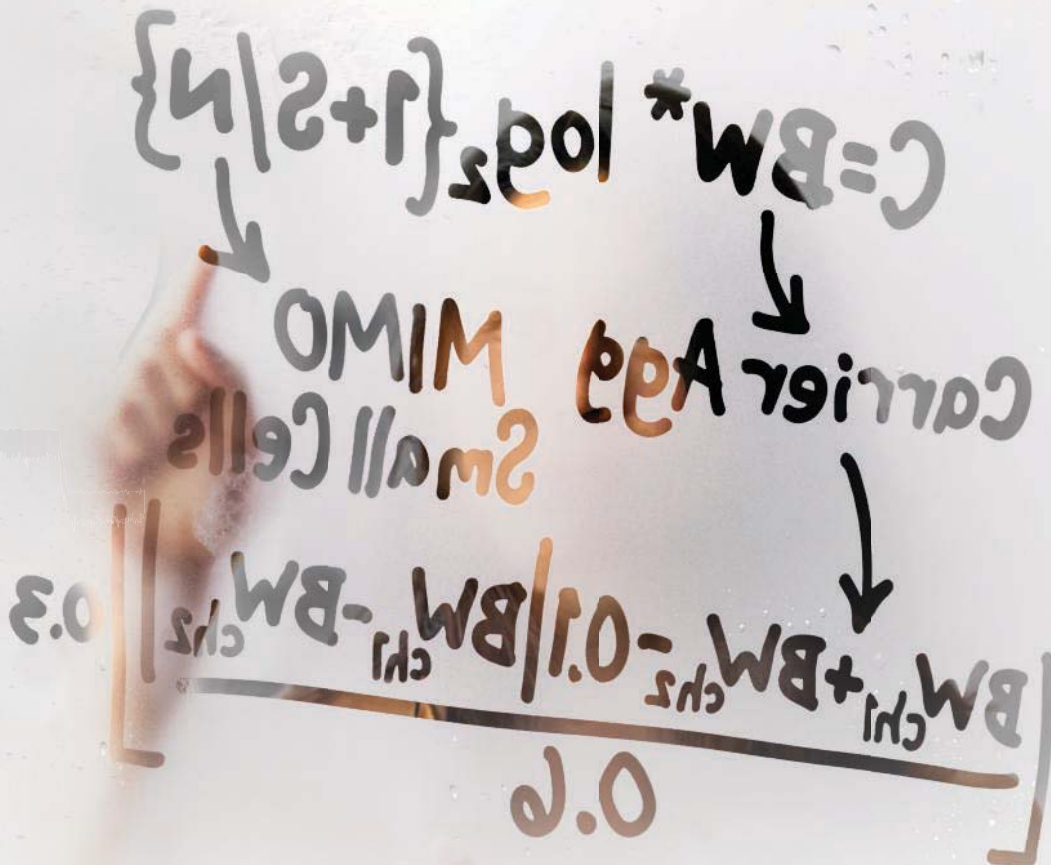 C=BW* log₂{1+S/N}
Carrier Agg MIMO
Small Cells
[BWch1+BWch2-0.1|BWch1-BWch2|] 0.3
0.6